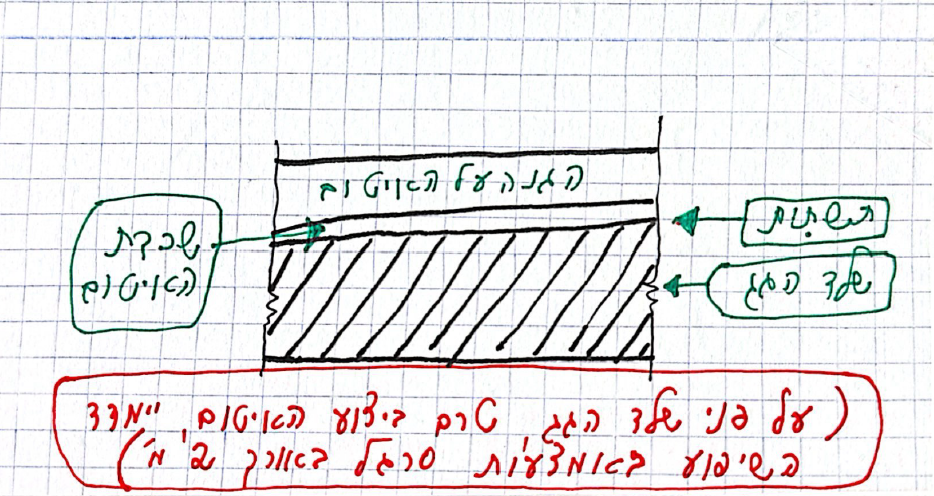 הגנה על האיטום
שכבת
האיטום
תשתית
שלד הגג
(על פני שלד הגג טרם ביצוע האיטום, יימדד
השיפוע באמצעות סרגל באורך 2 מ')